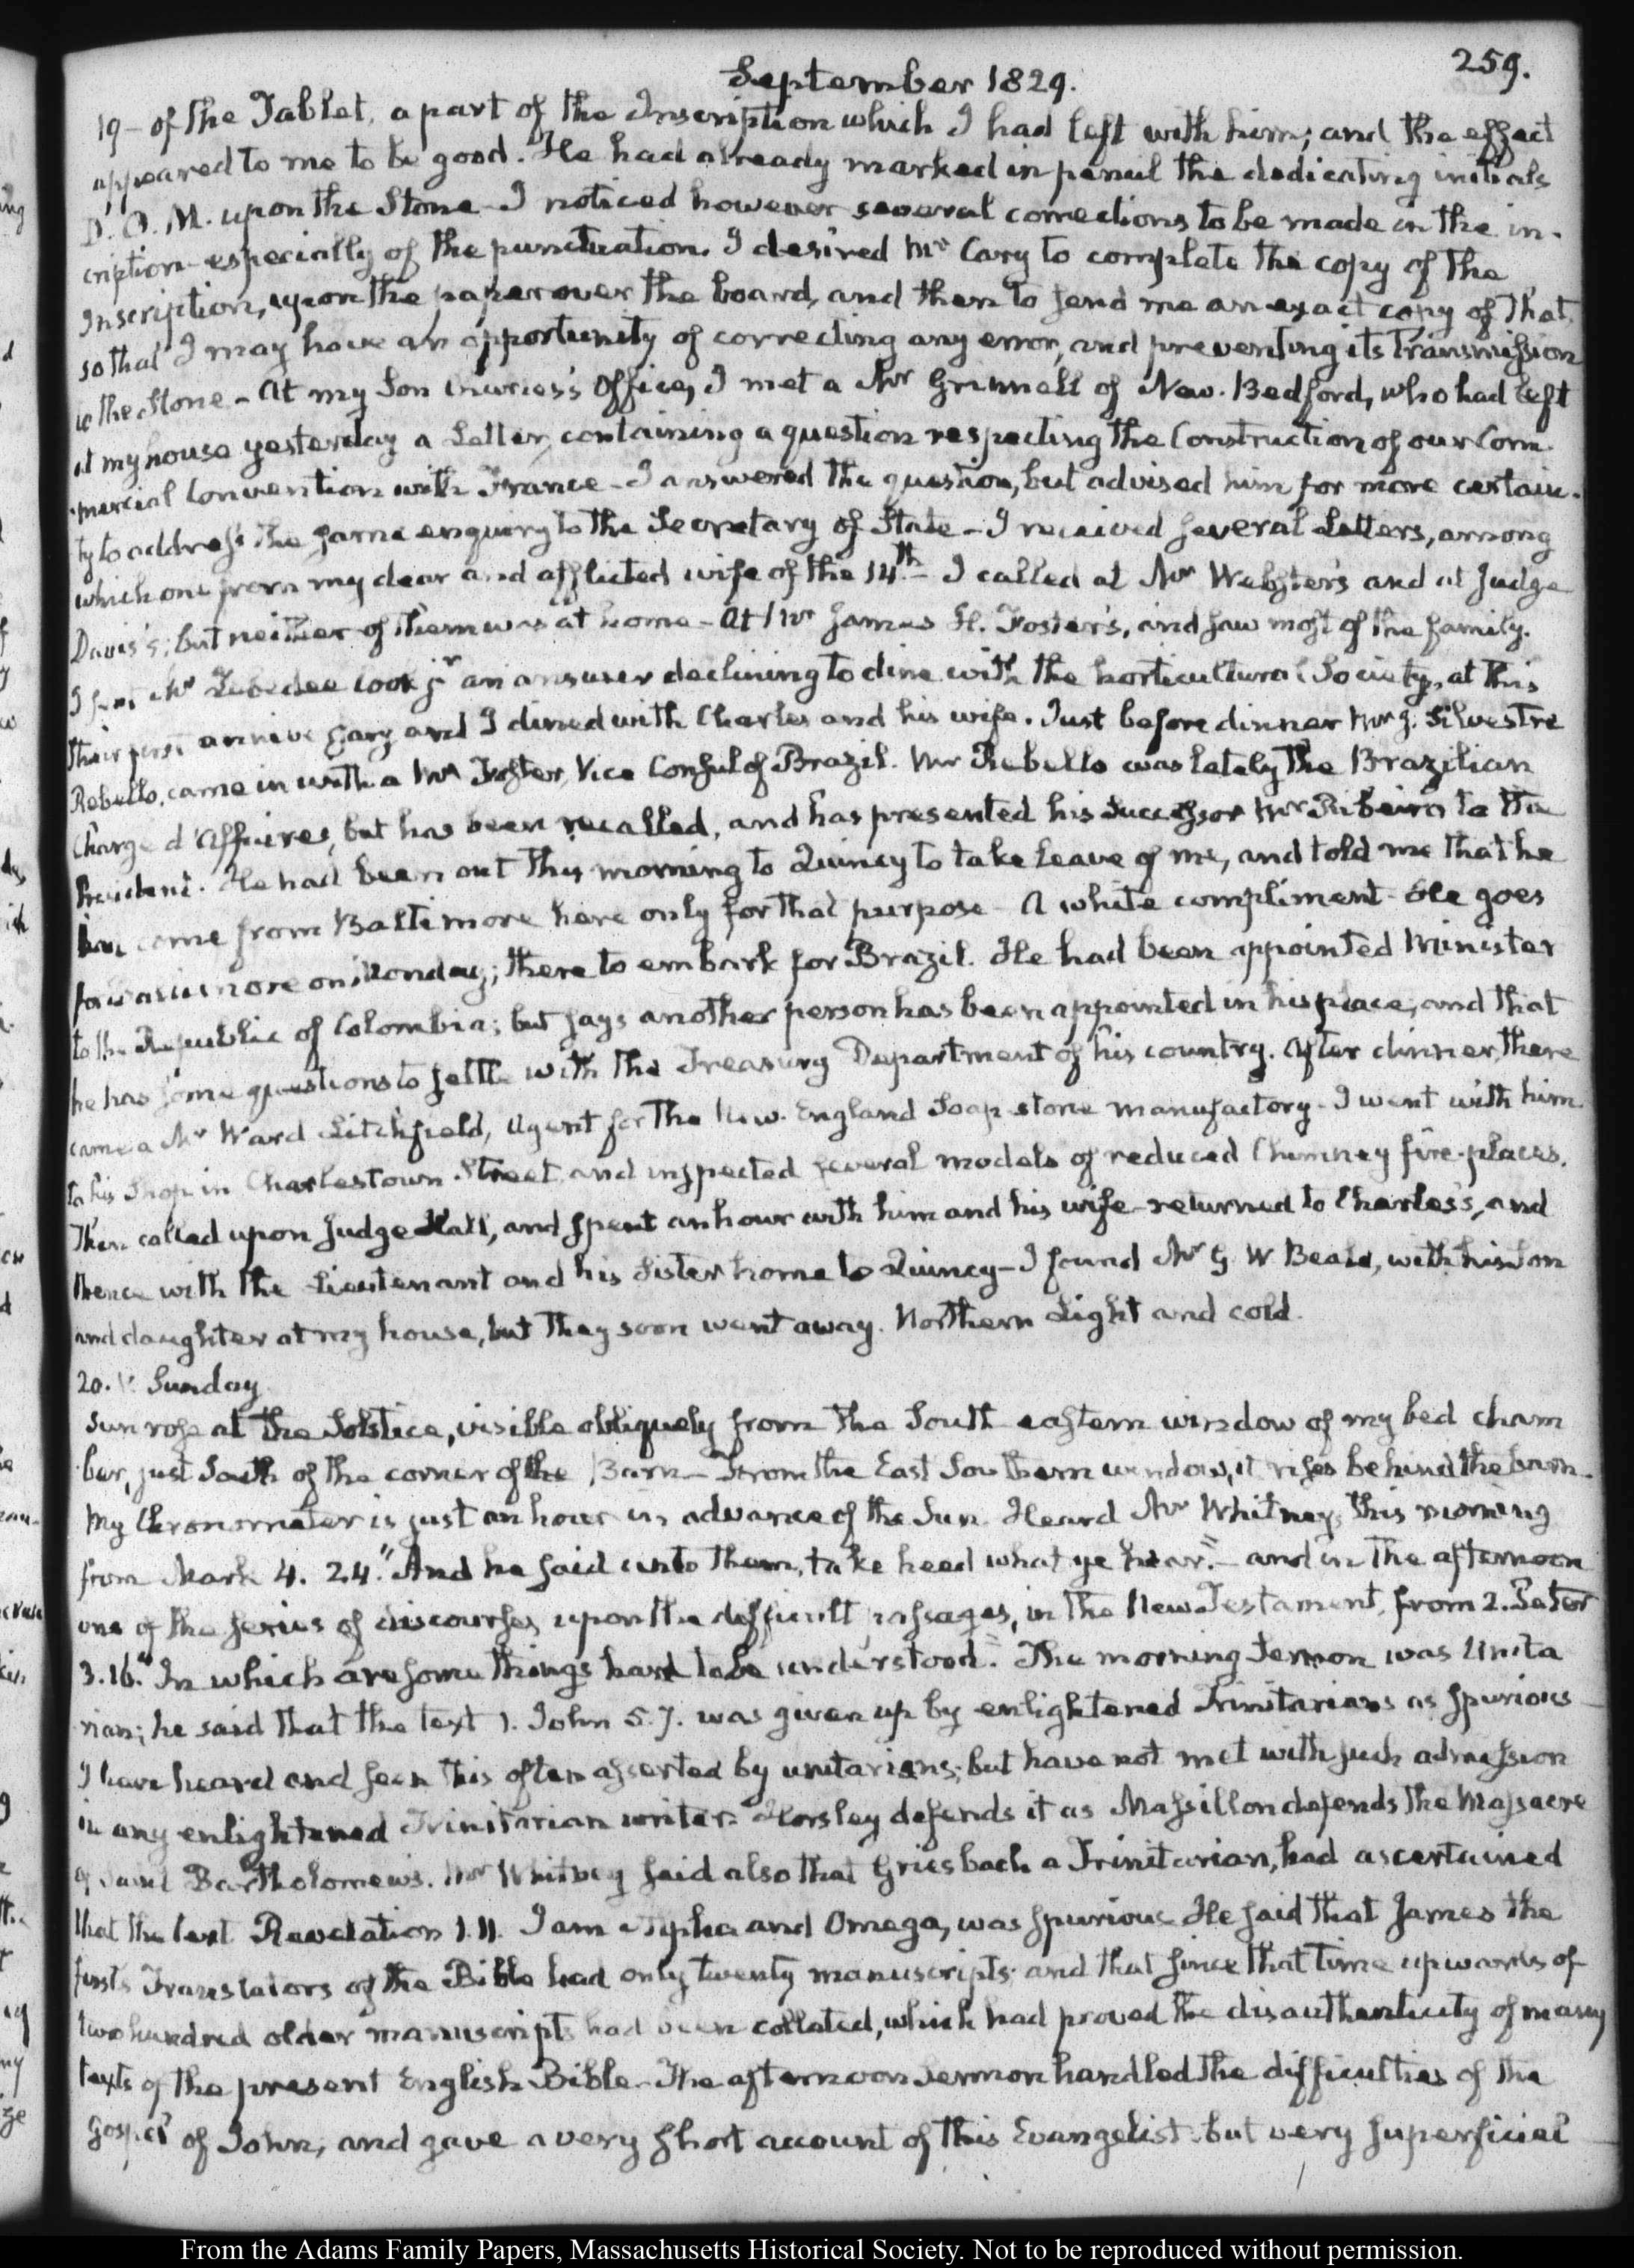 259.
September 1829.
19 - of the Tablet, a part of the Inscription which I had left with him; and the effect
appeared to me to be good. He had already marked in pencil the dedicating initials
D. O. M. upon the Stone - I noticed however several corrections to be made in the in-
cription - especially of the punctuation. I desired Mr Cary to complete the copy of the
Inscription, upon the paper over the board, and then to send me an exact copy of that,
so that I may have an opportunity of correcting any error, and preventing its transmission
to the Stone - At my Son Office, I met a Mr Grinnell of New-Bedford, who had left
at my house yesterday a Letter, containing a question respecting the Construction of our Com-
mercial Convention with France - I answered the question, but advised him for more certain-
ty to address the same enquiry to the Secretary of State - I received several Letters, among
which one from my dear and afflicted wife of the 14th - I called at Mr Webster's and at Judge
Davis's; but neither of them was at home - At Mr James H. Foster's, and saw most of the family.
I sent Mr Zebedee Cook jr an answer declining to dine with the horticultural Society, at this
their first annive and I dined with Charles and his wife. Just before dinner Mr J. Silvestre
Rebello, came in with a Mr Foster, Vice Consul of Brazil. Mr Rebello was lately the Brazilian
Chargé d'Affaires, but has been recalled, and has presented his Successor Mr Ribeiro to the
President. He had been out this morning to Quincy to take leave of me, and told me that he
had come from Baltimore here only for that purpose - A white compliment - He goes
for Baltimore on Monday; there to embark for Brazil. He had been appointed Minister
to the Republic of Colombia; but says another person has been appointed in his place, and that
he has some questions to settle with the Treasury Department of his country. After dinner, there
came a Mr Ward Litchfield, Agent for the New-England Soap stone manufactory - I went with him
to his Shop in Charlestown Street and inspected several models of reduced Chimney fire-places.
Then called upon Judge Hall, and spent an hour with him and his wife - returned to Charles's, and
thence with the Lieutenant and his Sister home to Quincy - I found Mr G. W Beale, with his Son
and daughter at my house, but they soon went away. Northern Light and cold.
20. V. Sunday
Sun rose at the Solstice, visible obliquely from the South eastern window of my bed cham
ber, just South of the corner of the Barn - From the East Southern window, it rises behind the barn.
My Chronometer is just an hour in advance of the Sun. Heard Mr Whitney, this morning
from Mark 4. 24. "And he said unto them, take heed what ye hear." - and in the afternoon
one of the series of discourses upon the difficult passages, in the New Testament, from 2. Peter
3.16. "In which are some things hard to be understood." The morning Sermon was Unita
rian; he said that the text 1. John 5.7. was given up by enlightened Trinitarians as spurious -
I have heard and seen this often asserted by unitarians; but have not met with such admission
in any enlightened Trinitarian writer. Horsley defends it as Massillon defends the Massacre
of Saint Bartholomew's. Mr Whitney said also that Griesbach a Trinitarian, had ascertained
that the text Revelation 1.11. I am Alpha and Omega, was spurious. He said that James the
firsts Translators of the Bible had only twenty manuscripts and that since that time upwards of
two hundred older manuscripts had been collated, which had proved the disauthenticity of many
texts of the present English Bible - The afternoon Sermon handled the difficulties of the
Gospel of John, and gave a very short account of this Evangelist but very superficial
From the Adams Family Papers, Massachusetts Historical Society. Not to be reproduced without permission.